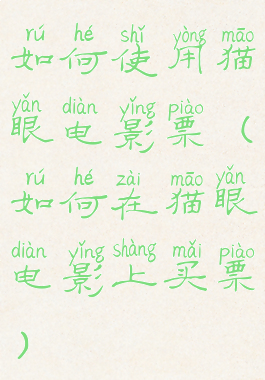 rú hé shǐ yòng māo
如何使用猫
yǎn diàn yǐng piào
眼电影票（
rú hé zài māo yǎn
如何在猫眼
diàn yǐng shàng mǎi piào
电影上买票
）